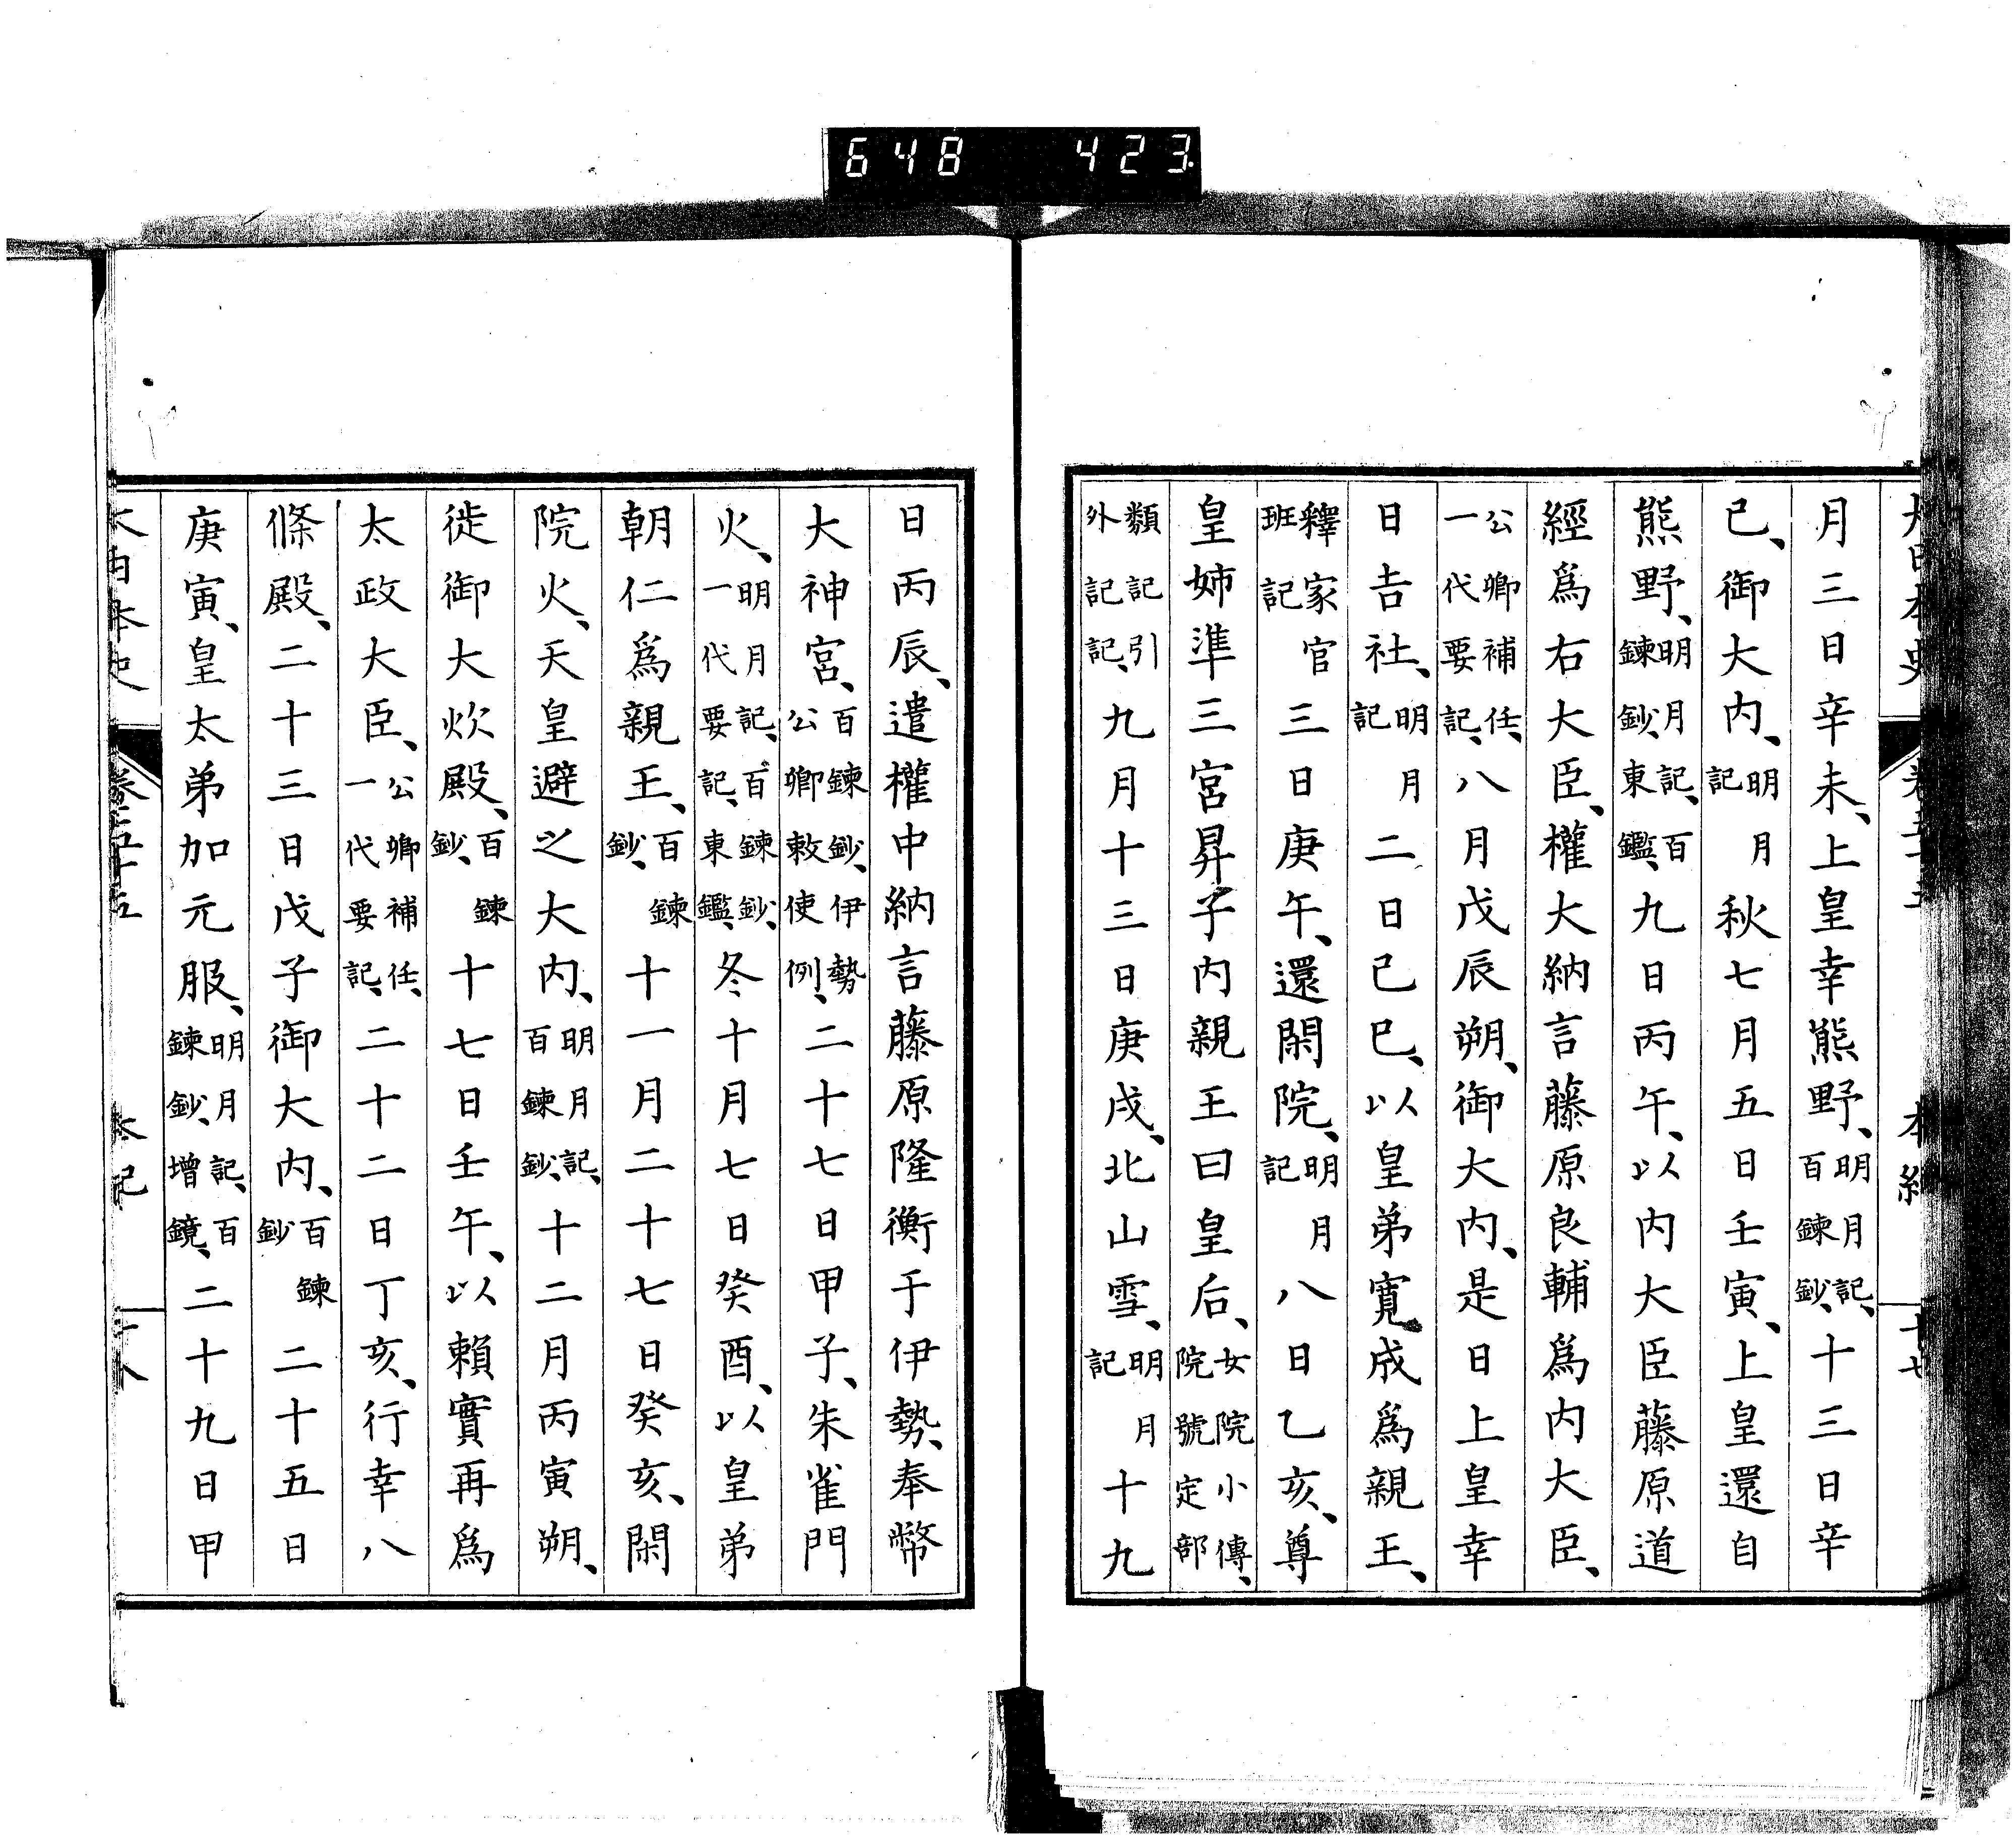 648 423
大日本史 卷五十五 本紀 十七
月三日辛未、上皇幸熊野、明月記、百鍊鈔、十三日辛
巳、御大內、明月記 秋七月五日壬寅、上皇還自
熊野、明月記、百鍊鈔、東鑑、九日丙午、以內大臣藤原道
經爲右大臣、權大納言藤原良輔爲內大臣、
公卿補任、一代要記、八月戊辰朔、御大內、是日上皇幸
日吉社、明月記 二日己巳、以皇弟寬成爲親王、
釋家官班記 三日庚午、還閑院、明月記 八日乙亥、尊
皇姉準三宮昇子內親王曰皇后、女院小傳、院號定部
類記引外記記、九月十三日庚戌、北山雪、明月記 十九
日丙辰、遣權中納言藤原隆衡于伊勢、奉幣
大神宮、百鍊鈔、伊勢公卿敕使例、二十七日甲子、朱雀門
火、明月記、百鍊鈔、一代要記、東鑑、冬十月七日癸酉、以皇弟
朝仁爲親王、百鍊鈔、十一月二十七日癸亥、閑
院火、天皇避之大內、明月記、百鍊鈔、十二月丙寅朔、
徙御大炊殿、百鍊鈔、十七日壬午、以賴實再爲
太政大臣、公卿補任、一代要記、二十二日丁亥、行幸八
條殿、二十三日戊子御大內、百鍊鈔 二十五日
庚寅、皇太弟加元服、明月記、百鍊鈔、增鏡、二十九日甲
大日本史 卷五十五 本紀 十八